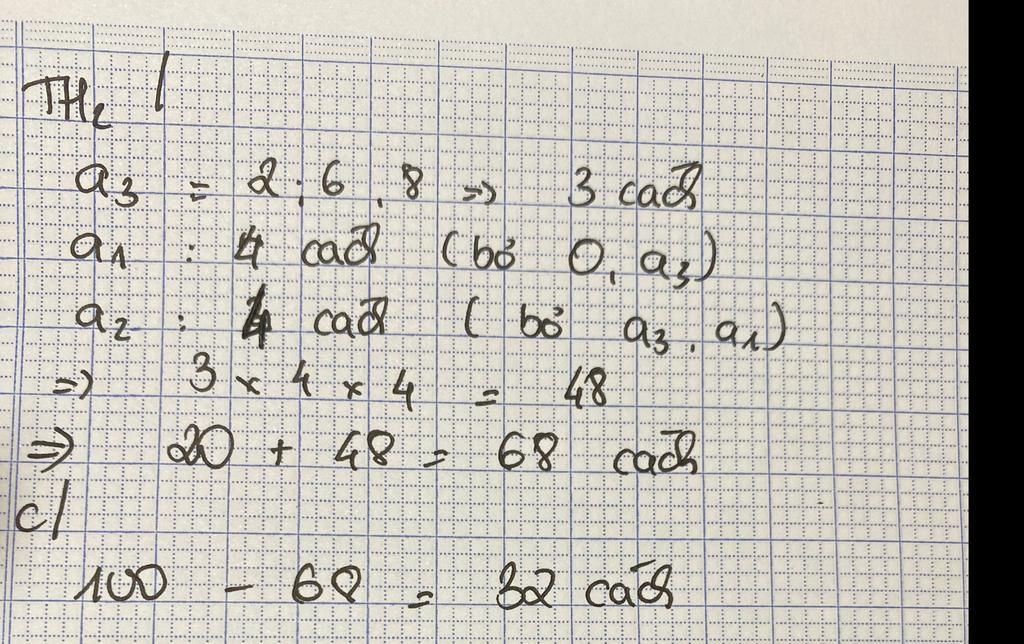 TH₂ /
a₃ = 2 ; 6 , 8 => 3 cách
a₁ : 4 cách (bỏ 0, a₃)
a₂ : 4 cách ( bỏ a₃ , a₁)
=> 3 x 4 x 4 = 48
=> 20 + 48 = 68 cách
c/
100 - 68 = 32 cách